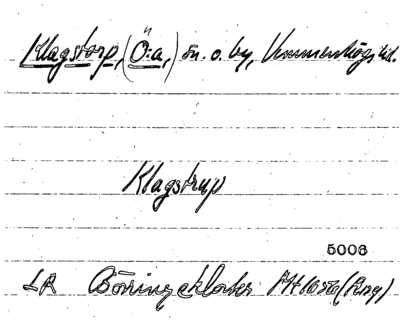 Klagstorp, (Ö:a,) sn. o. by, Vemmenhögs hd.
Klagstrup
5006
LR Börringekloster